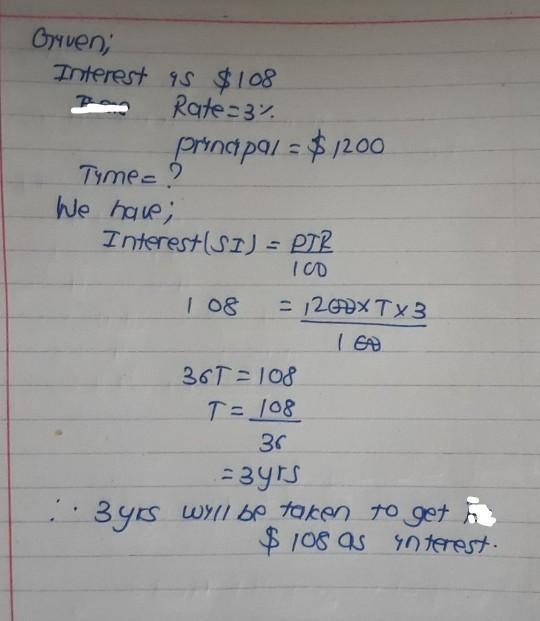 Given;
Interest is $108
Rate=3%
principal = $1200
Time= ?
We have;
Interest(SI) = PTR
100
108 = 1200×T×3
100
36T = 108
T = 108
36
= 3yrs
∴ 3yrs will be taken to get
$108 as interest.